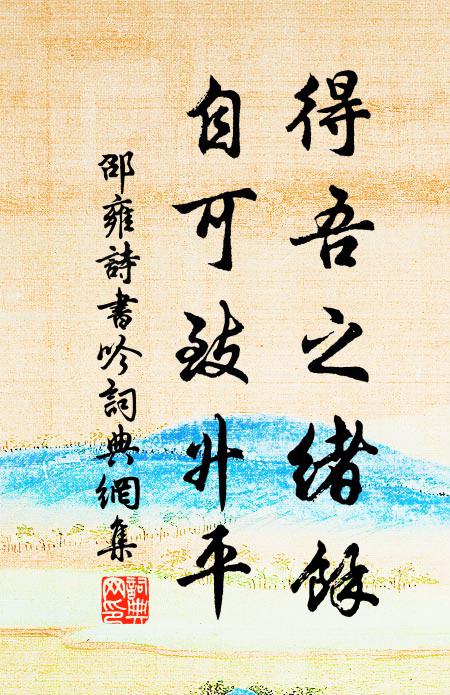 得吾之緒餘
自可致升平
邵雍詩書吟詞典網集
詞典網印